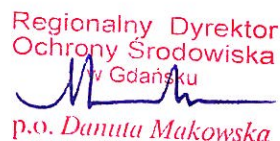 Regionalny Dyrektor
Ochrony Środowiska
w Gdańsku
p.o. Danuta Makowska